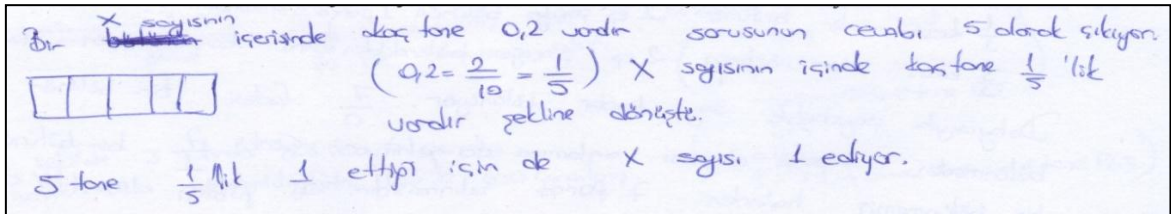 X sayısının
Bir içerisinde kaç tane 0,2 vardır sorusunun cevabı 5 olarak çıkıyor.
(0,2 = 2/10 = 1/5) X sayısının içinde kaç tane 1/5 'lik
vardır şekline dönüştü.
5 tane 1/5 lik 1 ettiği için de X sayısı 1 ediyor.